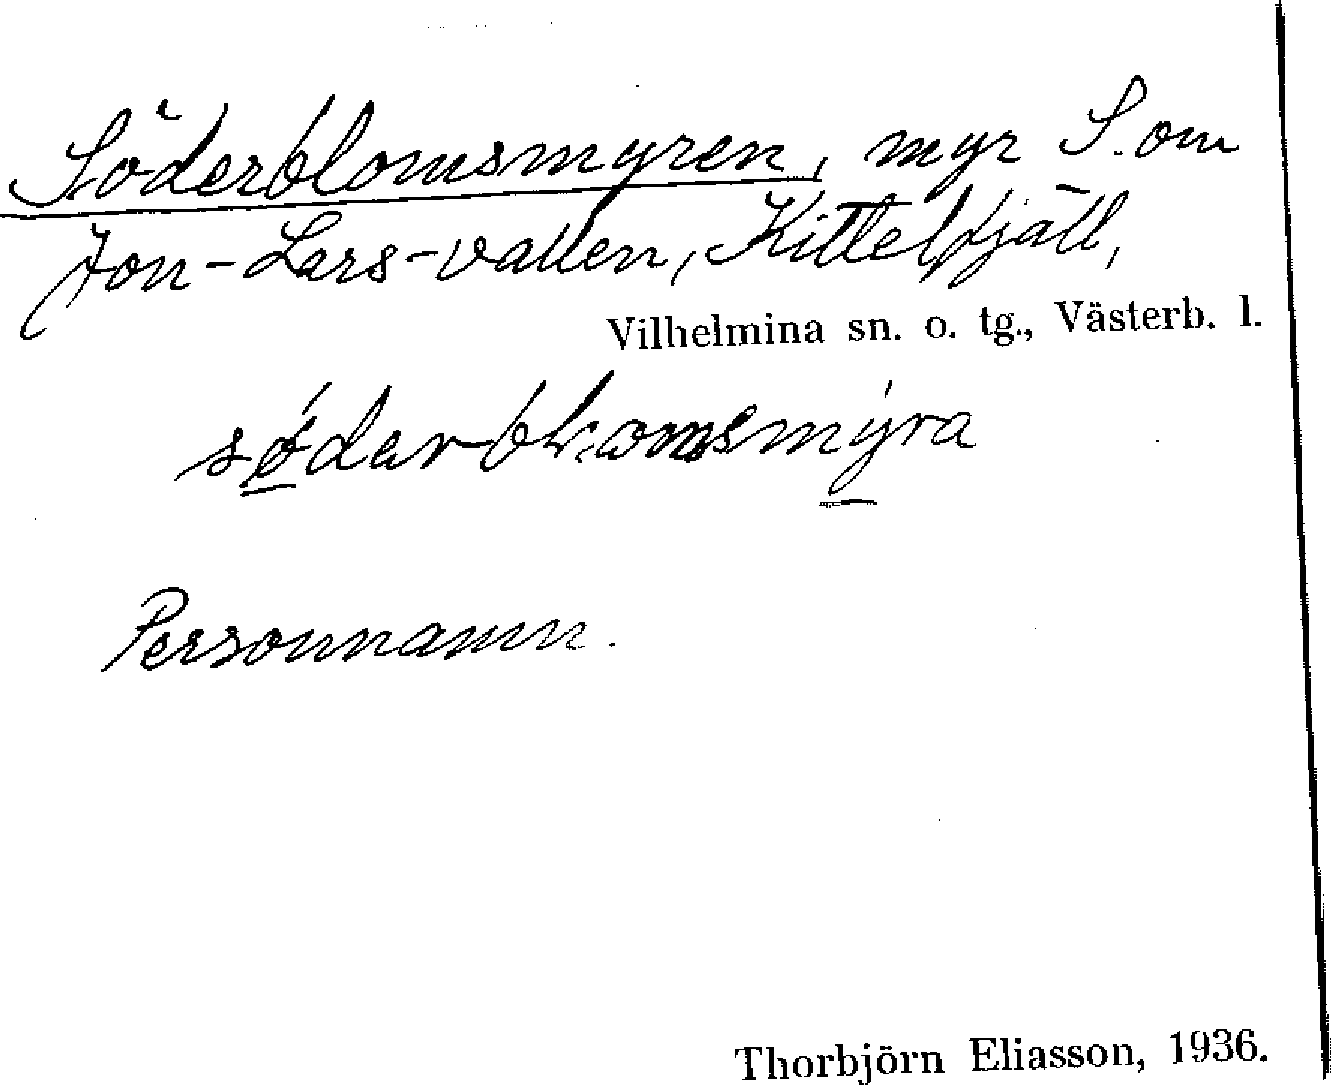 Söderblomsmyren, myr S. om
Jon-Lars-vallen, Kittelfjäll,
Vilhelmina sn. o. tg., Västerb. l.
Personnamn.
Thorbjörn Eliasson, 1936.